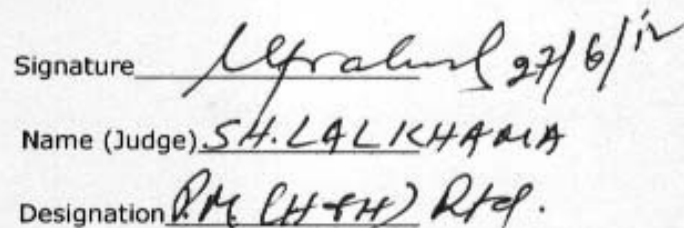 Signature 27/6/12
Name (Judge) SH. LALKHAMA
Designation D.M. (H&H) Rtd.